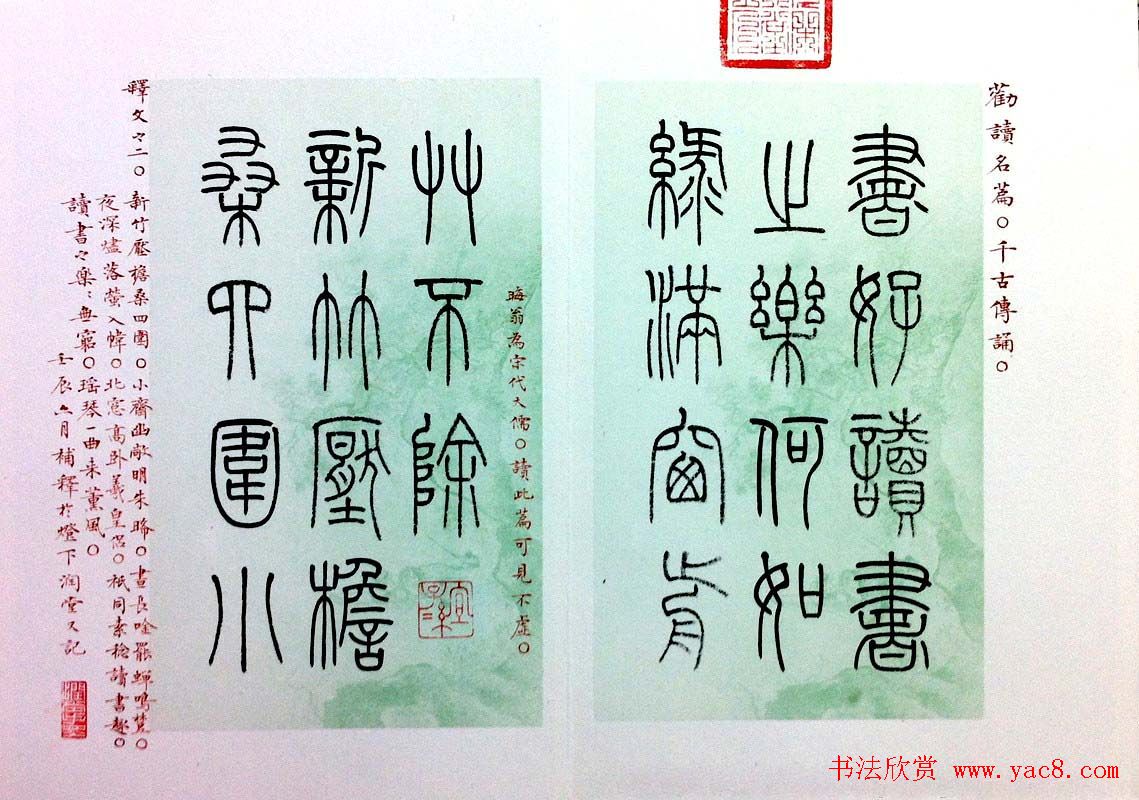 勸讀名篇。千古傳誦。
書好讀書
之樂何如
綠滿窗前
晦翁為宋代大儒。讀此篇可見不虛。
艸不除
宜子孫
新竹壓檐
桑四圍小
釋文之二。新竹壓檐桑四圍。小齋幽敞明朱曦。晝長吟罷蟬鳴樹。
夜深燼落螢入幃。北窓高卧羲皇侶。祇同素稔讀書趣。
讀書之樂〻無窮。瑤琴一曲来薰風。
壬辰六月補釋於燈下潤堂又記
书法欣赏 www.yac8.com